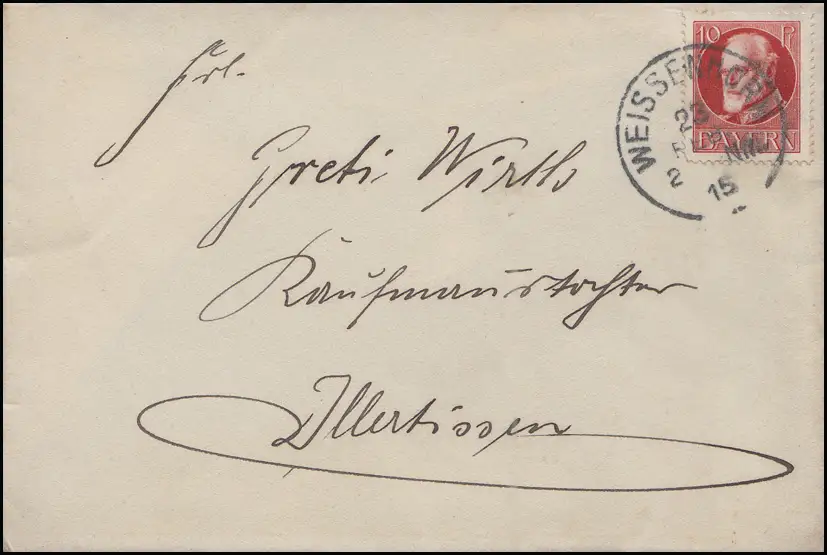 10 Pf
BAYERN
WEISSENHORN
23
2
15
Frl.
Greti Wirth
Kaufmanstochter
Illertissen